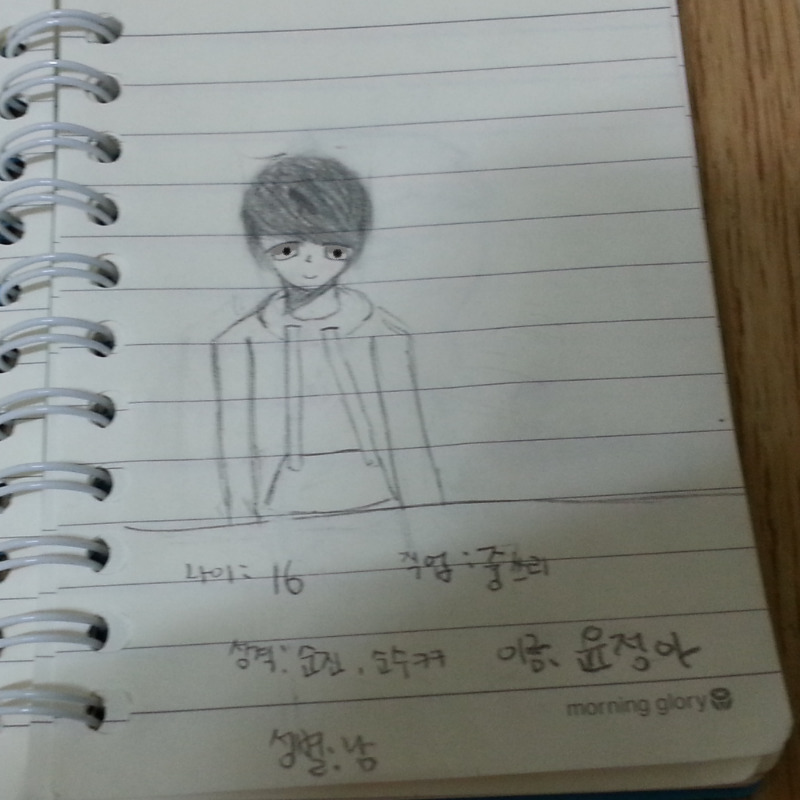 나이: 16 직업: 중쓰리
성격: 순진, 순수ㅋㅋ 이름. 윤정아
morning glory
성별: 남